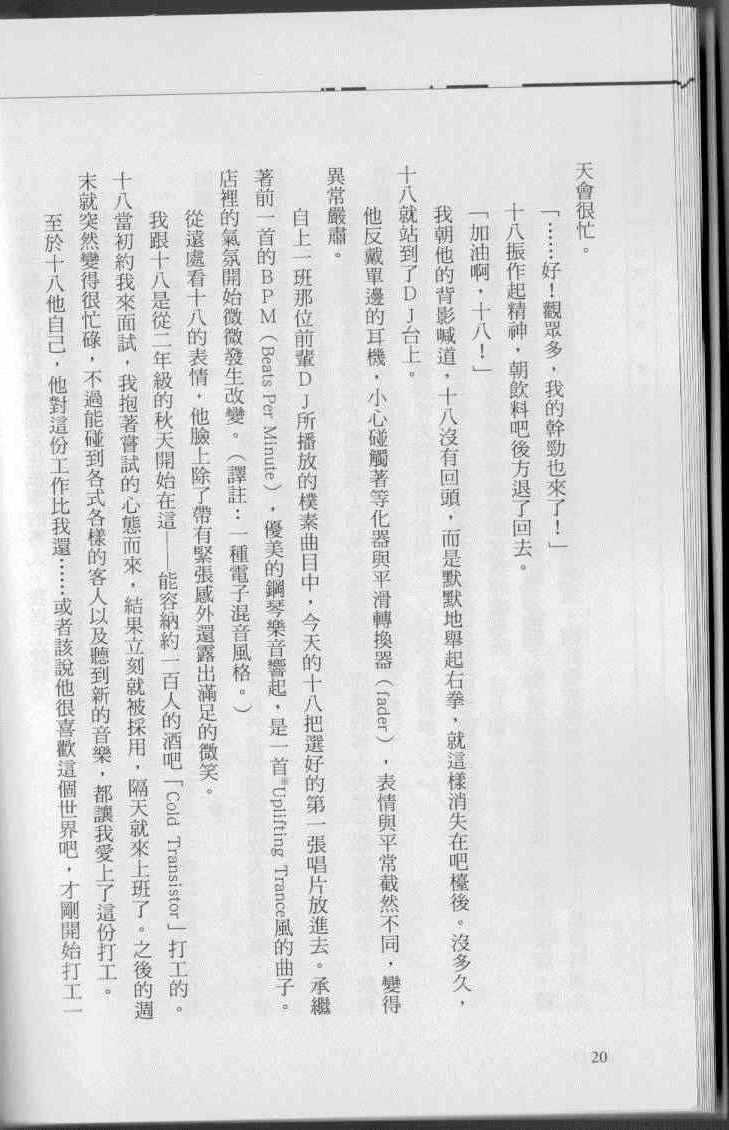 天會很忙。
「……好！觀眾多，我的幹勁也來了！」
十八振作起精神，朝飲料吧後方退了回去。
「加油啊，十八！」
我朝他的背影喊道，十八沒有回頭，而是默默地舉起右拳，就這樣消失在吧檯後。沒多久，
十八就站到了DJ台上。
他反戴單邊的耳機，小心碰觸著等化器與平滑轉換器（fader），表情與平常截然不同，變得
異常嚴肅。
自上一班那位前輩DJ所播放的樸素曲目中，今天的十八把選好的第一張唱片放進去。承繼
著前一首的BPM（Beats Per Minute），優美的鋼琴樂音響起，是一首※Uplifting Trance風的曲子。
店裡的氣氛開始微微發生改變。（譯註：一種電子混音風格。）
從遠處看十八的表情，他臉上除了帶有緊張感外還露出滿足的微笑。
我跟十八是從二年級的秋天開始在這——能容納約一百人的酒吧「Cold Transistor」打工的。
十八當初約我來面試，我抱著嘗試的心態而來，結果立刻就被採用，隔天就來上班了。之後的週
末就突然變得很忙碌，不過能碰到各式各樣的客人以及聽到新的音樂，都讓我愛上了這份打工。
至於十八他自己，他對這份工作比我還……或者該說他很喜歡這個世界吧，才剛開始打工一
20